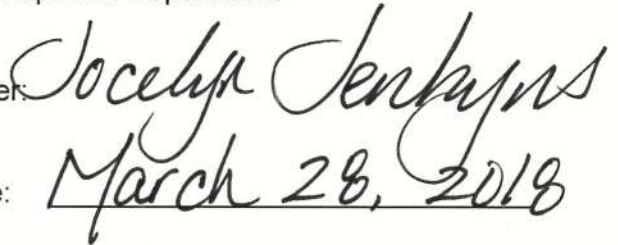 er: Jocelyn Jenkyns
e: March 28, 2018